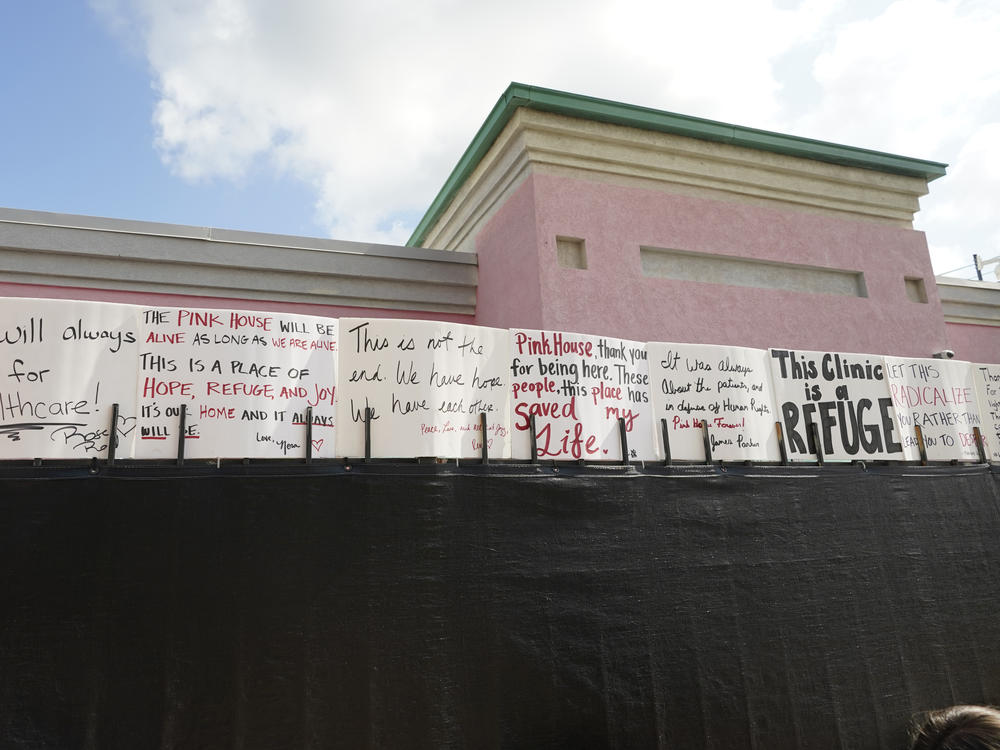 will always
for
lthcare!
Rose
THE PINK HOUSE WILL BE
ALIVE AS LONG AS WE ARE ALIVE.
THIS IS A PLACE OF
HOPE, REFUGE, AND JOY.
IT'S OUR HOME AND IT ALWAYS
WILL BE.
Love,
This is not the
end. We have hope.
We have each other.
Peace, Love, and
Pink House, thank you
for being here. These
people, this place has
saved my
Life.
It was always
About the patients, and
in defense of Human Rights.
Pink House Forever!
This Clinic
is a
REFUGE
LET THIS
RADICALIZE
YOU RATHER THAN
LEAD YOU TO